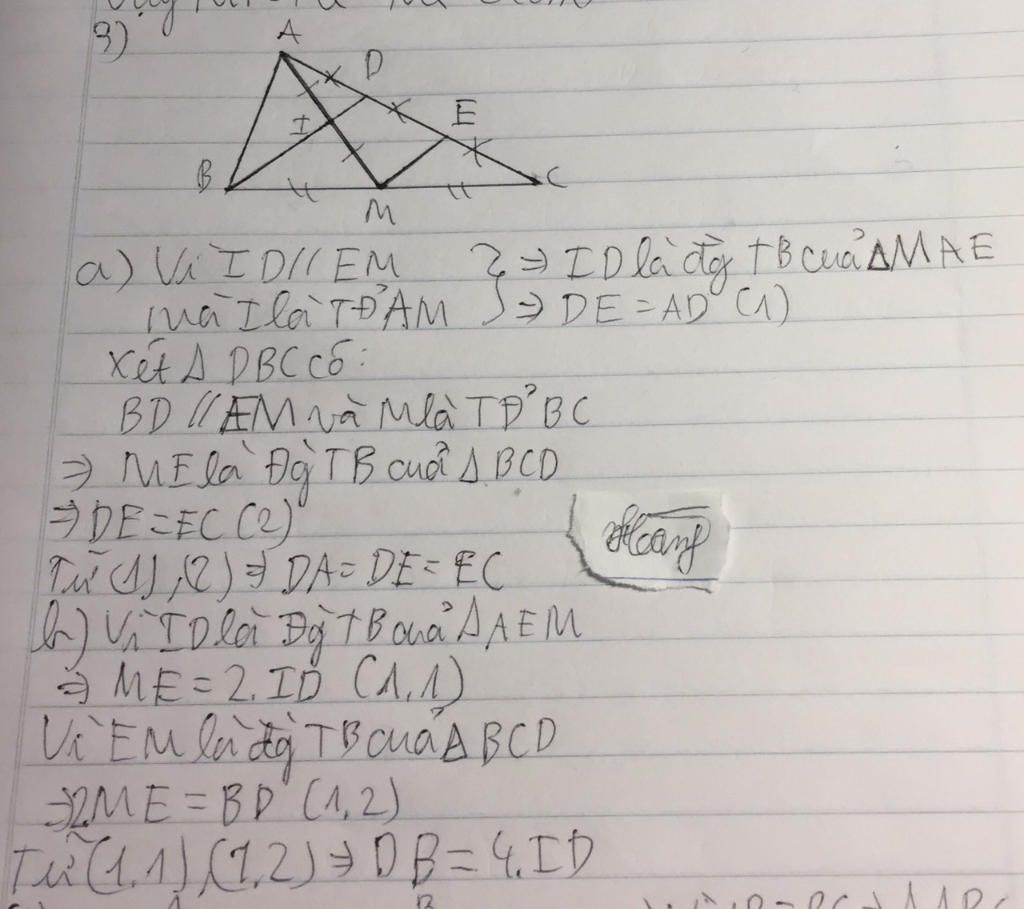 3)
A
D
E
I
B
M
C
a) Vì ID // EM } ⇒ ID là đg TB của ΔMAE
mà I là TĐ' AM } ⇒ DE = AD (1)
Xét Δ DBC có:
BD // EM và M là TĐ' BC
⇒ ME là Đg TB của Δ BCD
⇒ DE = EC (2)
Từ (1), (2) ⇒ DA = DE = EC
b) Vì ID là Đg TB của Δ AEM
⇒ ME = 2. ID (1,1)
Vì EM là đg TB của Δ BCD
⇒ 2ME = BD (1,2)
Từ (1,1), (1,2) ⇒ DB = 4. ID